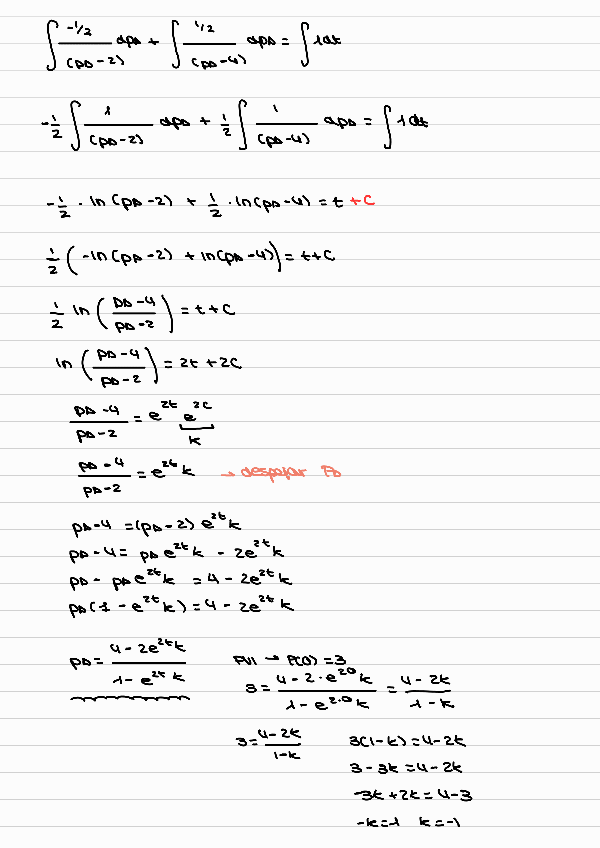 ∫ -1/2/(P-2) dP + ∫ 1/2/(P-4) dP = ∫ 1 dt
-1/2 ∫ 1/(P-2) dP + 1/2 ∫ 1/(P-4) dP = ∫ 1 dt
-1/2 · ln(P-2) + 1/2 · ln(P-4) = t + C
1/2 (-ln(P-2) + ln(P-4)) = t + C
1/2 ln((P-4)/(P-2)) = t + C
ln((P-4)/(P-2)) = 2t + 2C
(P-4)/(P-2) = e^2t e^2C
k
(P-4)/(P-2) = e^2t k → despejar P
P-4 = (P-2) e^2t k
P-4 = P e^2t k - 2e^2t k
P - P e^2t k = 4 - 2e^2t k
P(1 - e^2t k) = 4 - 2e^2t k
P = (4 - 2e^2t k)/(1 - e^2t k) PVI → P(0) = 3
3 = (4 - 2·e^2·0 k)/(1 - e^2·0 k) = (4 - 2k)/(1 - k)
3 = (4-2k)/(1-k) 3(1-k) = 4-2k
3 - 3k = 4 - 2k
-3k + 2k = 4 - 3
-k = 1 k = -1